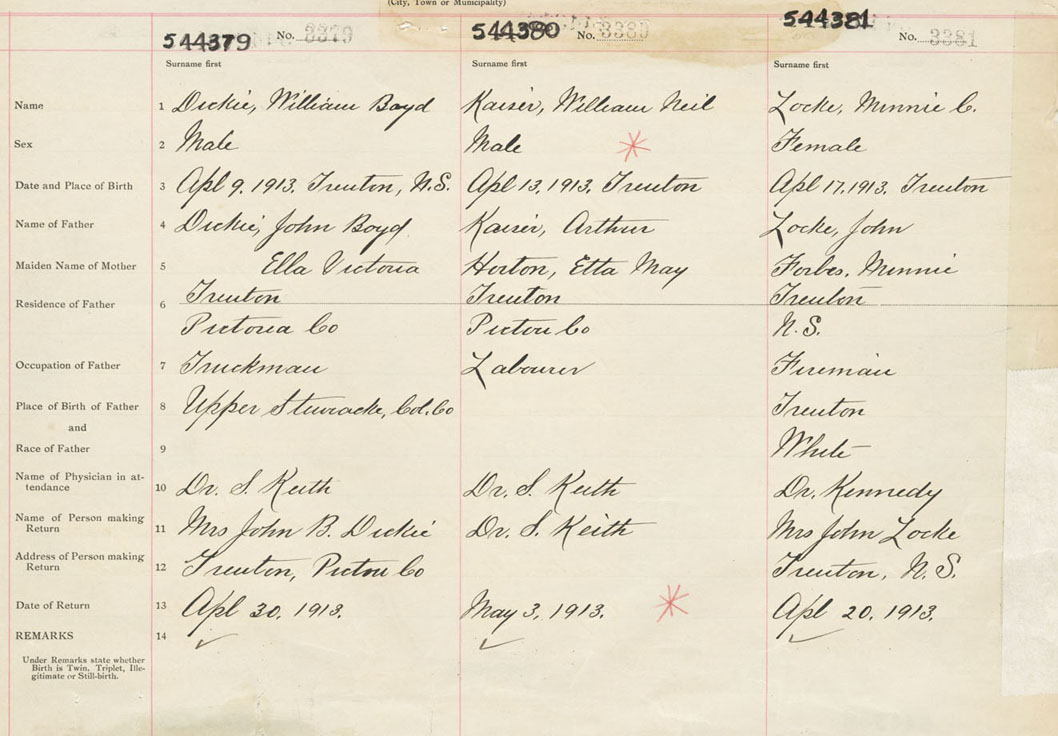 (City, Town or Municipality)
544379 No. 3379 544380 No. 3380 544381 No. 3381
Surname first Surname first Surname first
Name 1 Dickie, William Boyd Kaiser, William Neil Locke, Minnie C.
Sex 2 Male Male Female
Date and Place of Birth 3 Apl 9, 1913, Trenton, N.S. Apl 13, 1913, Trenton Apl 17, 1913, Trenton
Name of Father 4 Dickie, John Boyd Kaiser, Arthur Locke, John
Maiden Name of Mother 5 Ella Victoria Horton, Etta May Forbes, Minnie
Residence of Father 6 Trenton Trenton Trenton
Pictou Co Pictou Co N.S.
Occupation of Father 7 Truckman Labourer Fireman
Place of Birth of Father 8 Upper Stewiacke, Col. Co Trenton
and
Race of Father 9 White
Name of Physician in at-
tendance 10 Dr. S. Keith Dr. S. Keith Dr. Kennedy
Name of Person making
Return 11 Mrs John B. Dickie Dr. S. Keith Mrs John Locke
Address of Person making
Return 12 Trenton, Pictou Co Trenton, N.S.
Date of Return 13 Apl 30, 1913. May 3, 1913. Apl 20, 1913.
REMARKS 14
Under Remarks state whether
Birth is Twin, Triplet, Ille-
gitimate or Still-birth.